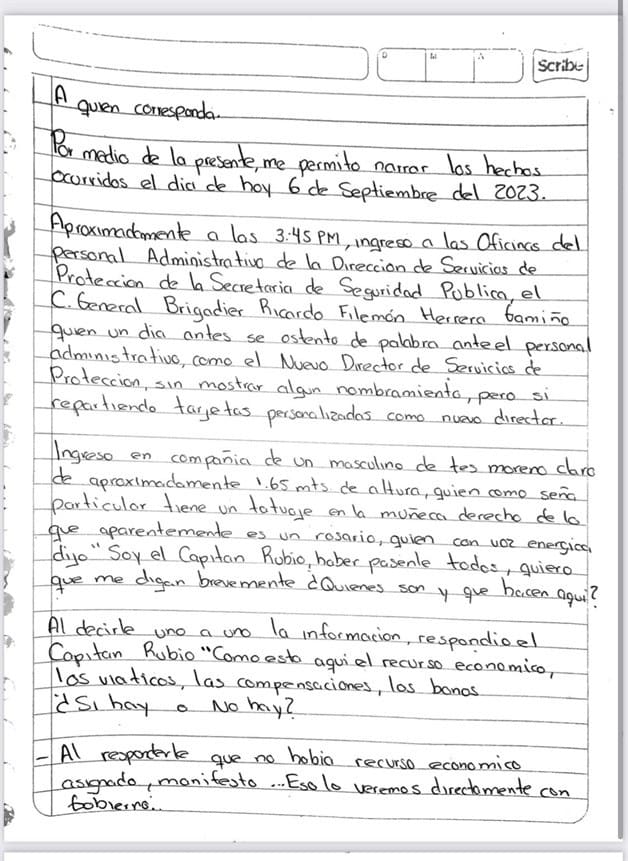 Scribe
A quien corresponda.
Por medio de la presente, me permito narrar los hechos
ocurridos el dia de hoy 6 de Septiembre del 2023.
Aproximadamente a las 3:45 PM, ingreso a las Oficinas del
personal Administrativo de la Direccion de Servicios de
Proteccion de la Secretaria de Seguridad Publica, el
C. General Brigadier Ricardo Filemón Herrera Gamiño
quien un dia antes se ostento de palabra ante el personal
administrativo, como el Nuevo Director de Servicios de
Proteccion, sin mostrar algun nombramiento, pero si
repartiendo tarjetas personalizadas como nuevo director.
Ingreso en compañia de un masculino de tes moreno claro
de aproximadamente 1.65 mts de altura, quien como seña
particular tiene un tatuaje en la muñeca derecho de lo
que aparentemente es un rosario, quien con voz energica,
dijo "Soy el Capitan Rubio, haber pasenle todos, quiero
que me digan brevemente ¿Quienes son y que hacen aqui?
Al decirle uno a uno la informacion, respondio el
Capitan Rubio "Como esta aqui el recurso economico,
los viaticos, las compensaciones, los bonos
¿Si hay o No hay?
- Al responderle que no habia recurso economico
asignado, manifesto ...Eso lo veremos directamente con
Gobierno..